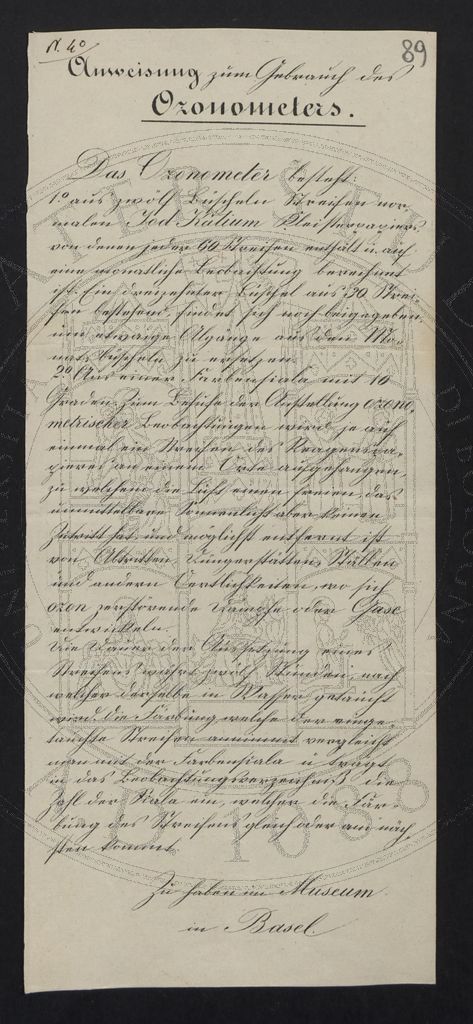 N. 40
89
Anweisung zum Gebrauch des
Ozonometers.
Das Ozonometer besteht:
1.° aus zwölf Büscheln Streifen nor,
malen Jod Kalium Kleisterpapiers
von denen jeder 60 Streifen enthält u. auf
eine monatliche Beobachtung berechnet
ist. Ein dreizehnter Büschel aus 30 Strei-
fen bestehend, findet sich noch beigegeben,
um etwaige Abgänge aus den Mo,
nats-büscheln zu ersetzen.
2° Aus einer Farbenskala mit 10
Graden. Zum Behufe der Anstellung ozono,
metrischer Beobachtungen wird je auf
einmal ein Streifen des Reagenspa,
pieres an einem Orte aufgehangen,
zu welchem die Luft einen freien, das
unmittelbare Sonnenlicht aber keinen
Zutritt hat, und möglichst entfernt ist
von Abtritten, Düngerstätten, Ställen
und andern Oertlichkeiten, wo sich
ozon zerstörende Dämpfe oder Gase
entwickeln.
Die Dauer der Aussetzung eines
Streifens währt zwölf Stunden, nach
welcher derselbe in Wasser getaucht
wird. Die Färbung welche der einge,
tauchte Streifen annimmt, vergleicht
man mit der Farbenskala u. trägt
in das Beobachtungsverzeichniß die
Zahl der Skala ein, welcher die Fär-
bung des Streifens gleich oder am näch,
sten kommt.
Zu haben im Museum
in Basel.